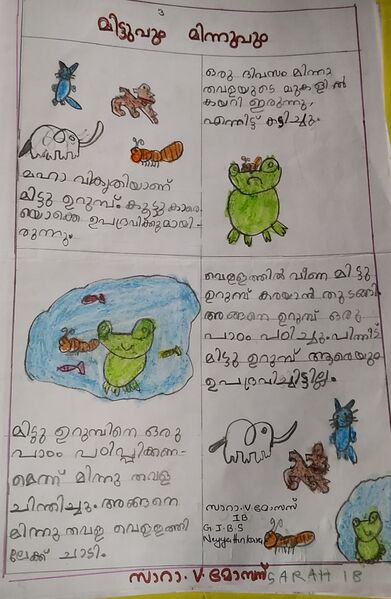 3
മിട്ടുവും മിന്നുവും
മഹാ വികൃതിയാണ്
മിട്ടു ഉറുമ്പ്. കൂട്ടുകാരെ
യൊക്കെ ഉപദ്രവിക്കുമായി-
രുന്നു.
ഒരു ദിവസം മിന്നു
തവളയുടെ മുകളിൽ
കയറി ഇരുന്നു,
എന്നിട്ട് കടിച്ചു.
മിട്ടു ഉറുമ്പിനെ ഒരു
പാഠം പഠിപ്പിക്കണ-
മെന്ന് മിന്നു തവള
ചിന്തിച്ചു. അങ്ങനെ
മിന്നു തവള വെള്ളത്തി
ലേക്ക് ചാടി.
വെള്ളത്തിൽ വീണ മിട്ടു
ഉറുമ്പ് കരയാൻ തുടങ്ങി
അങ്ങനെ ഉറുമ്പ് ഒരു
പാഠം പഠിച്ചു. പിന്നീട്
മിട്ടു ഉറുമ്പ് ആരെയും
ഉപദ്രവിച്ചിട്ടില്ല.
സാറാ. V മോനസ്
IB
G.J.B.S
സാറാ. V. മോനസ് SARAH 1B